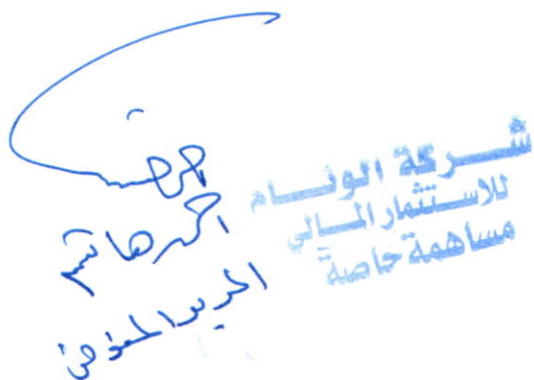 احمد هاشم
المدير المفوض
شركة الوئام
للاستثمار المالي
مساهمة خاصة